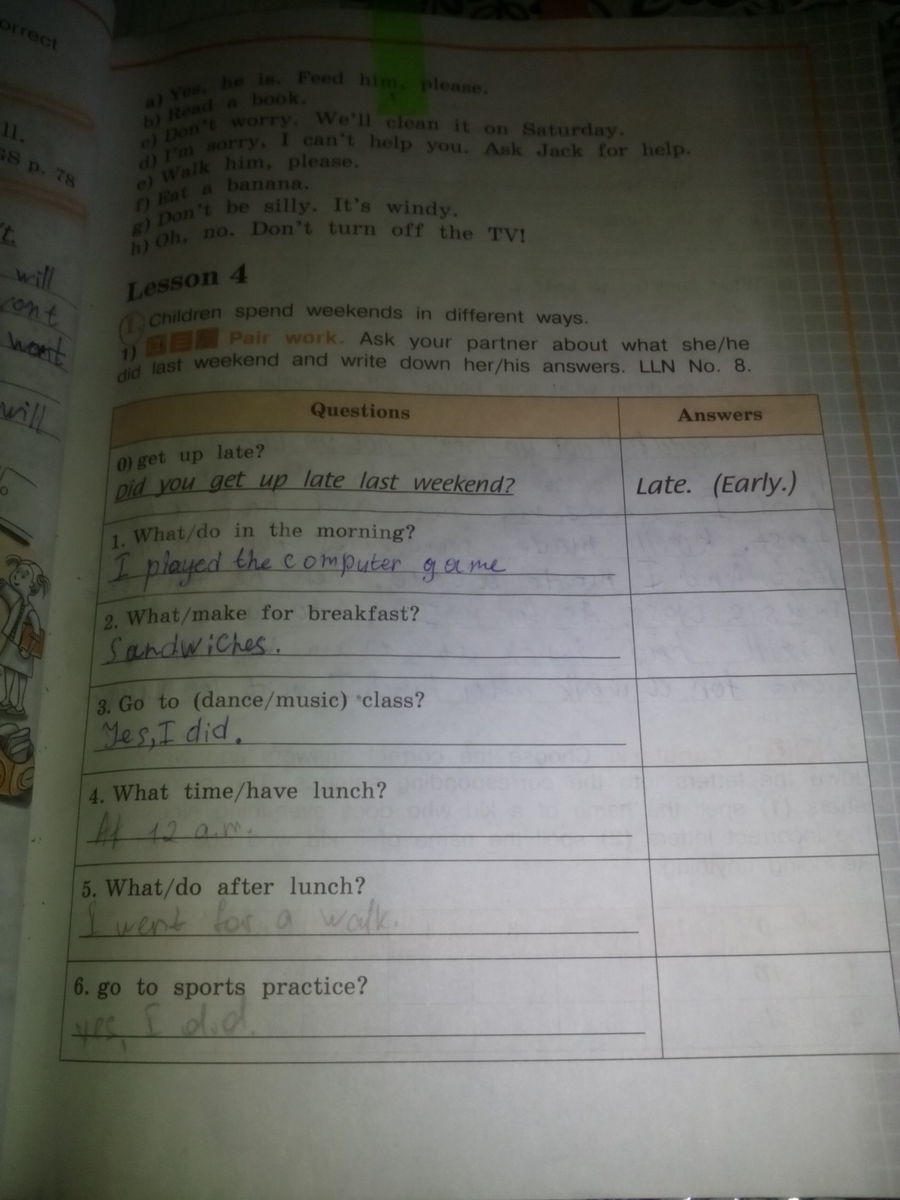 orrect
11.
SB p. 78
't.
will
cont
wont
will
a) Yes, he is. Feed him, please.
b) Read a book.
c) Don't worry. We'll clean it on Saturday.
d) I'm sorry, I can't help you. Ask Jack for help.
e) Walk him, please.
f) Eat a banana.
g) Don't be silly. It's windy.
h) Oh, no. Don't turn off the TV!
Lesson 4
1. Children spend weekends in different ways.
1) Pair work. Ask your partner about what she/he
did last weekend and write down her/his answers. LLN No. 8.
Questions
Answers
0) get up late?
Did you get up late last weekend?
Late. (Early.)
1. What/do in the morning?
I played the computer game
2. What/make for breakfast?
Sandwiches.
3. Go to (dance/music) class?
Yes, I did.
4. What time/have lunch?
At 12 a.m.
5. What/do after lunch?
I went for a walk.
6. go to sports practice?
yes, I did.